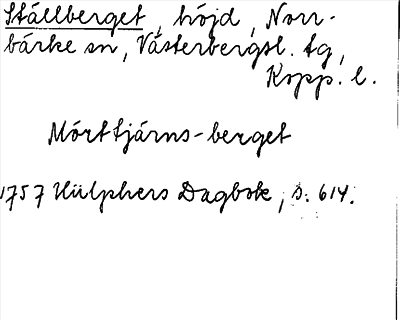 Stållberget, höjd, Norr-
bärke sn, Västerbergsl. tg,
Kopp. l.
Mörttjärns-berget
1757 Hülphers Dagbok, s. 614.